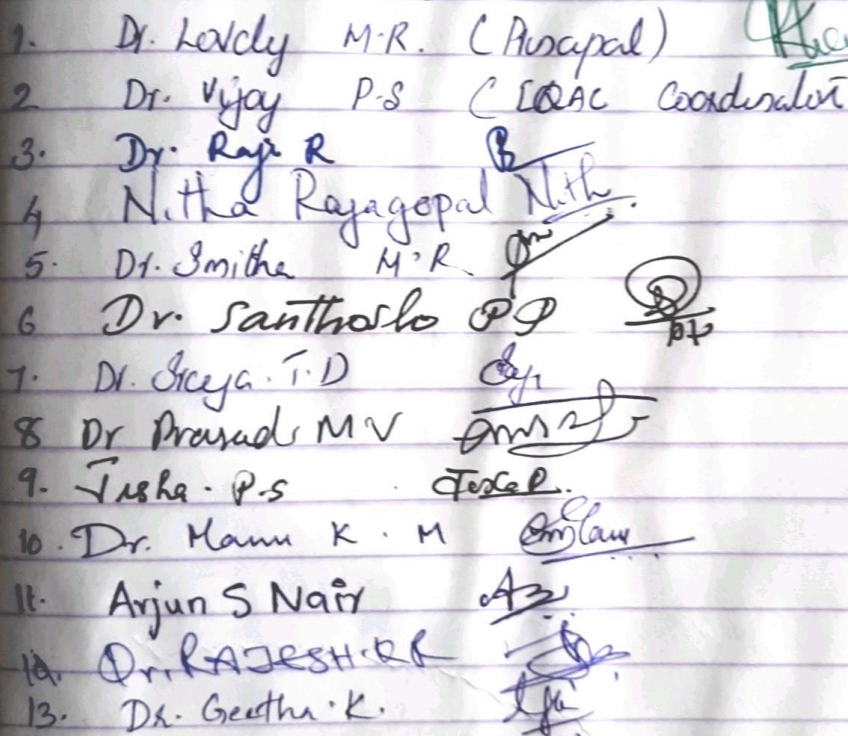 1. Dr. Lovely M.R. (Principal)
2 Dr. Vijay P.S (IQAC Coordinator
3. Dr. Raji R
4 Nitha Rajagopal Nith
5. Dr. Smitha M.R
6 Dr. Santhosh P P
7. Dr. Sreeja. T.D
8 Dr Prasad M V
9. Jisha. P.S
10. Dr. Manu K. M
11. Arjun S Nair
12. Dr. RAJESH.K R
13. Dr. Geetha.K.